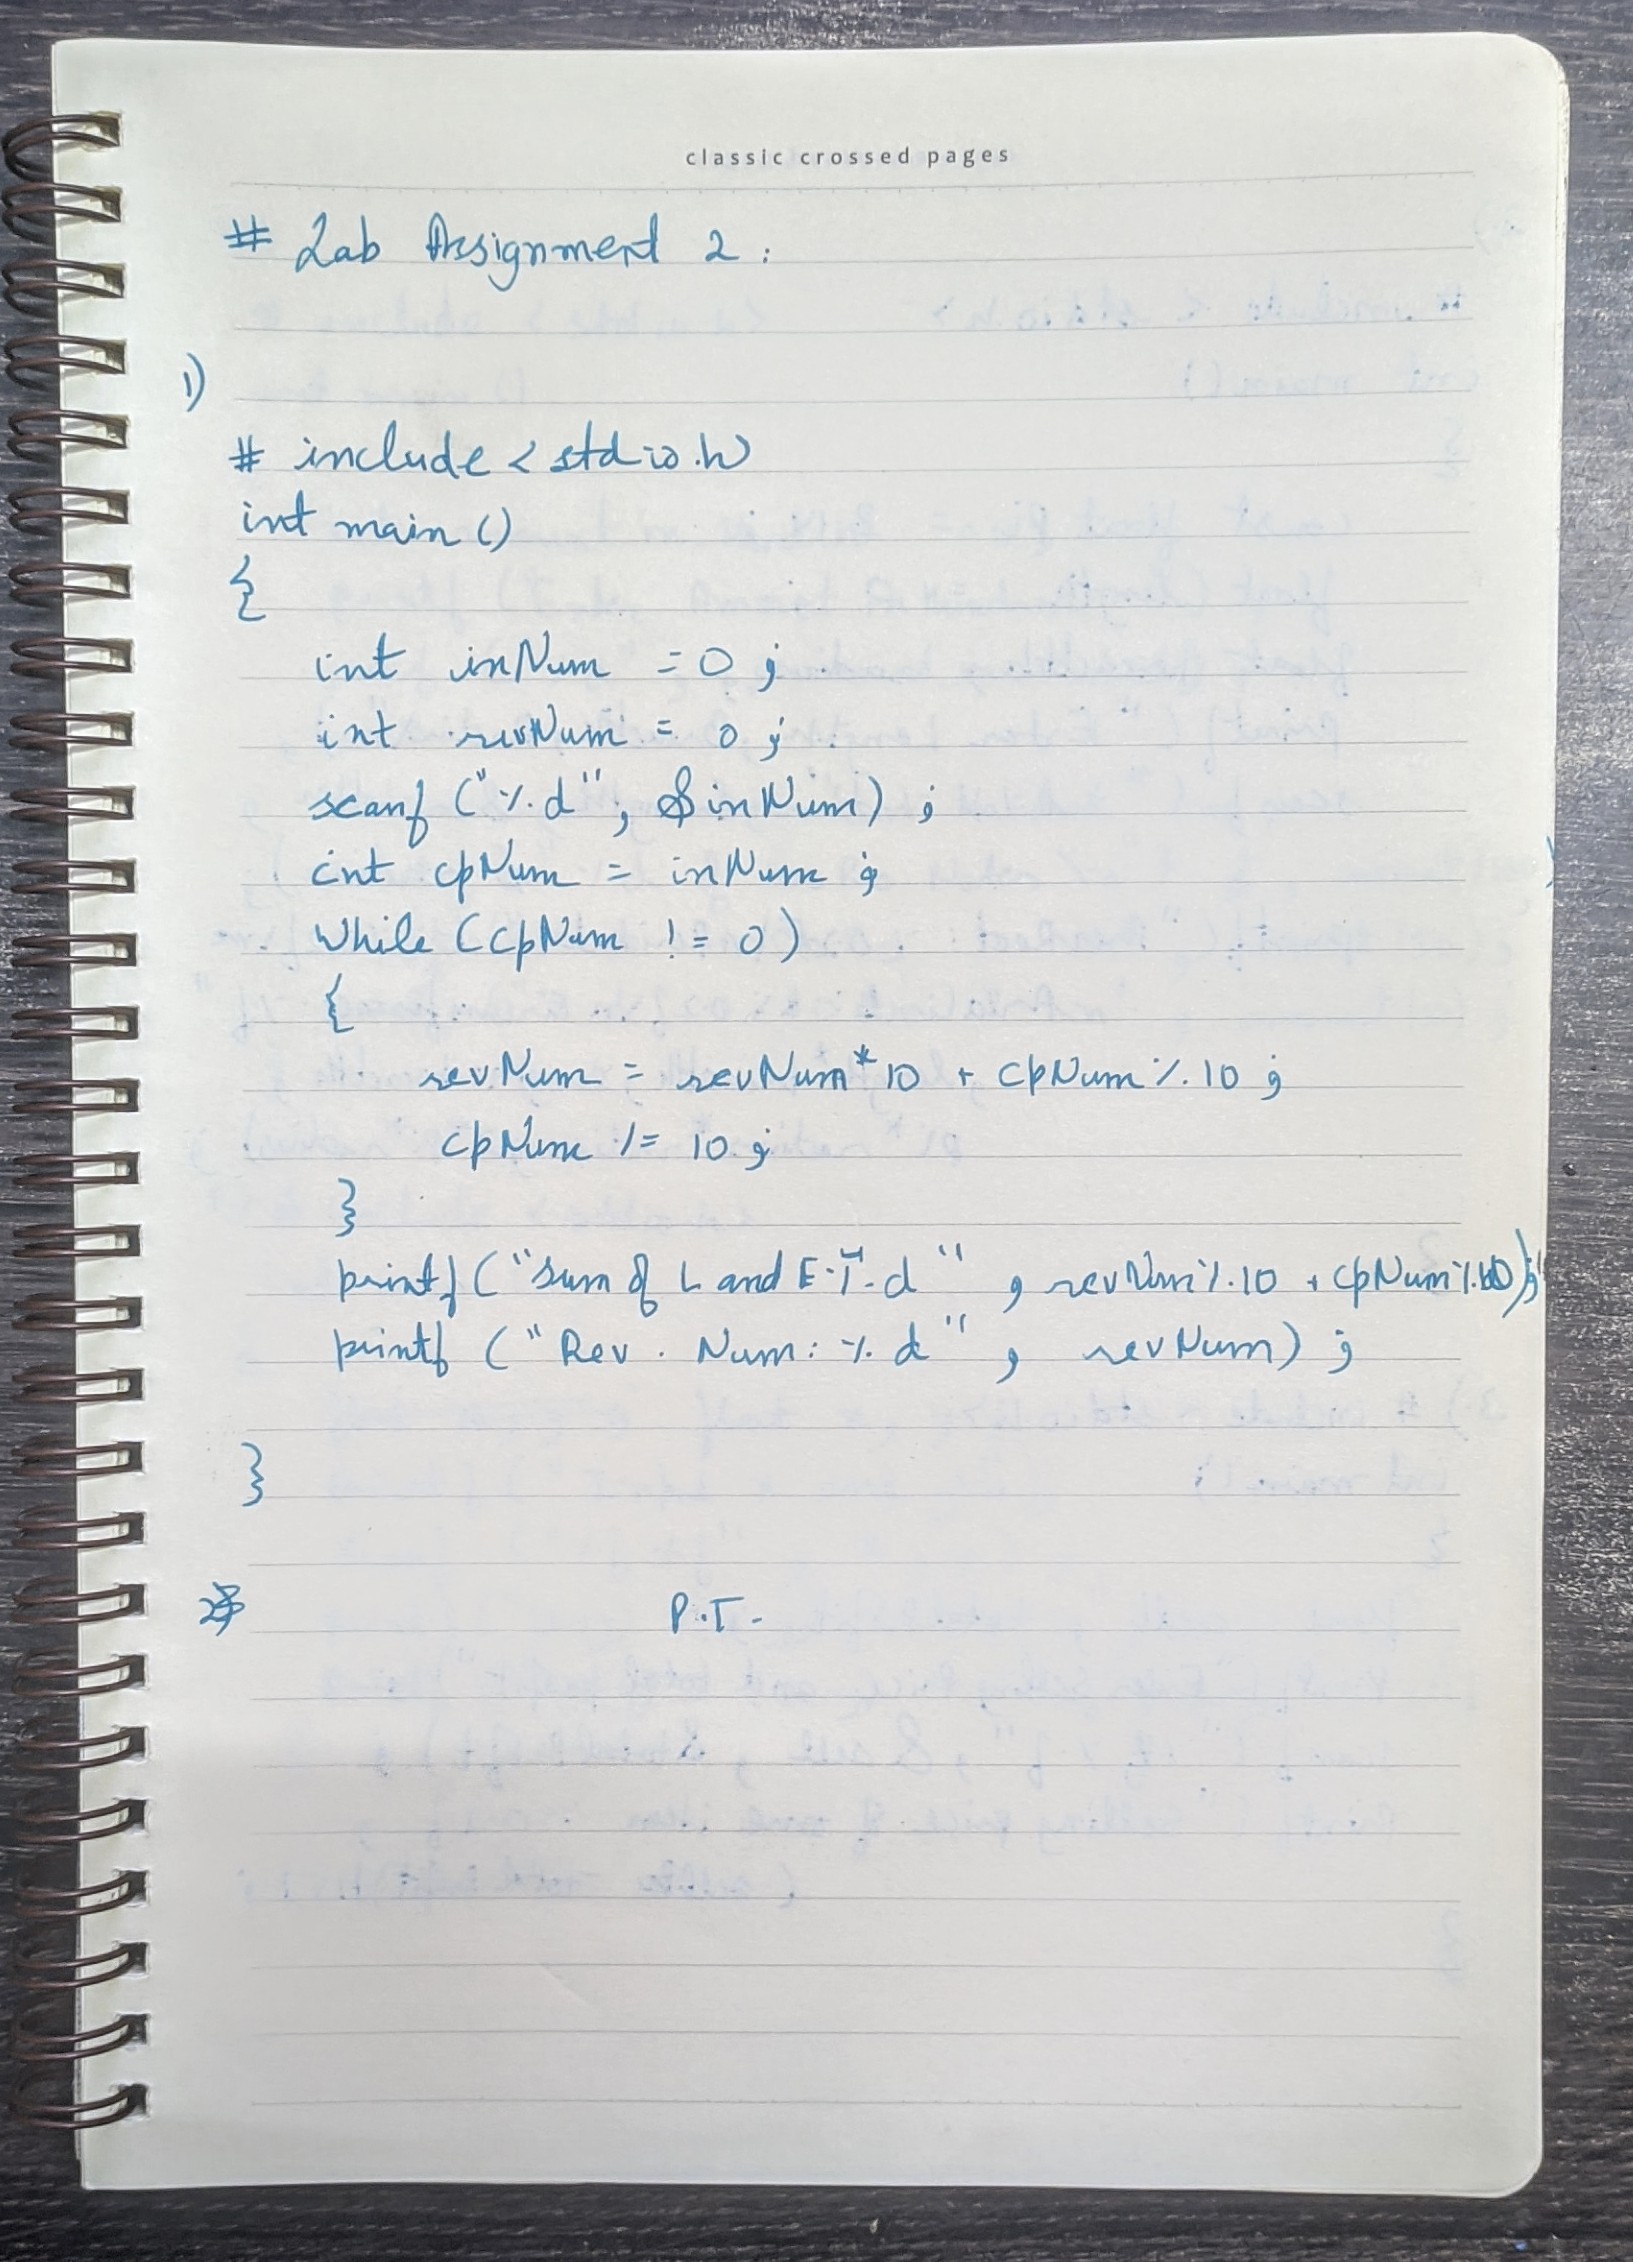 classic crossed pages
# Lab Assignment 2 :
1)
# include <stdio.h>
int main ()
{
int inNum = 0 ;
int revNum = 0 ;
scanf ("%d", &inNum) ;
int cpNum = inNum ;
while (cpNum != 0)
{
revNum = revNum*10 + cpNum % 10 ;
cpNum /= 10 ;
}
printf ("Sum of L and E %d" , revNum%10 + cpNum%10);
printf ("Rev. Num: %d" , revNum) ;
}
P.T.